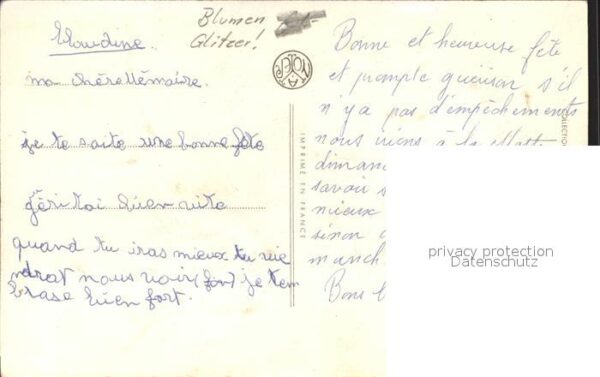 Blumen
Glitzer!
Claudine.
ma chère Mémaire.
je te saite une bonne fete
géri toi bien vite
quand tu iras mieux tu vie
ndrat nous voir (fon) je tem
brase bien fort.
IMPRIMÉ EN FRANCE
Bonne et heureuse fête
et prompte guérison s'il
n'y a pas d'empêchements
nous viens à la
diman
savoir s
mieux
sinon
manch
Bons b
COLLECTION
privacy protection
Datenschutz